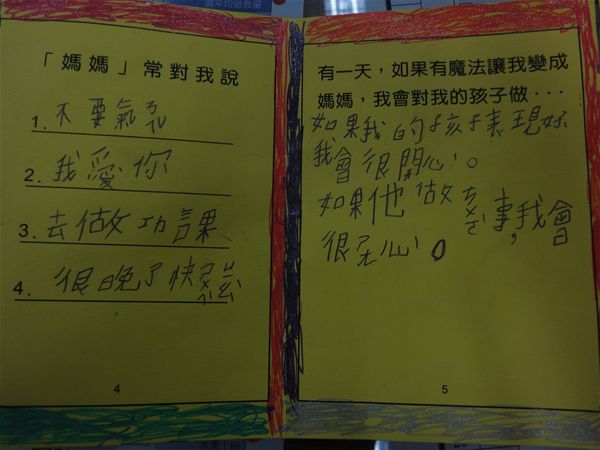 「媽媽」常對我說
1. 不要氣ㄋㄟ
2. 我愛你
3. 去做功課
4. 很晚了快
4
有一天，如果有魔法讓我變成
媽媽，我會對我的孩子做...
如果我的孩子表現好
我會很開心。
如果他做ㄘㄨㄛˋ事，我會
很ㄕㄤ心。
5